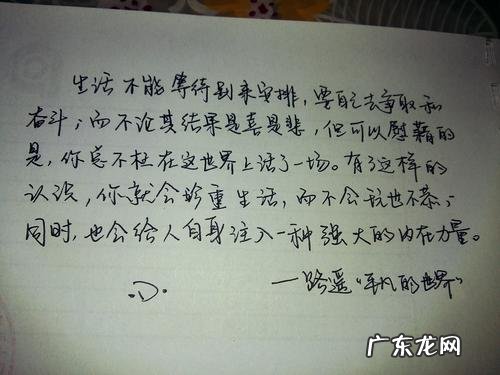 生活不能等待别来安排，要自己去争取和
奋斗；而不论其结果是喜是悲，但可以慰藉的
是，你总不枉在这世界上活了一场。有了这样的
认识，你就会珍重生活，而不会玩世不恭；
同时，也会给人自身注入一种强大的内在力量。
——路遥“平凡的世界”
广东龙网